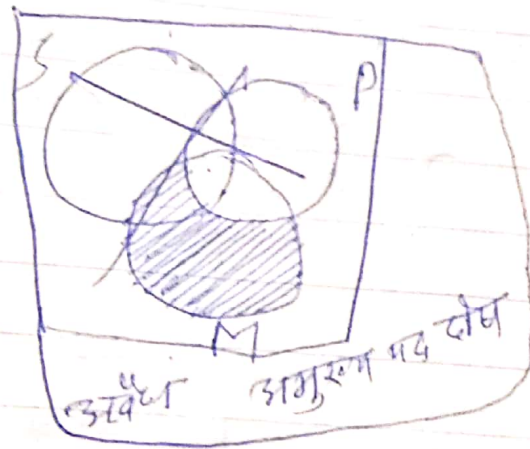 S P
M
अवैध अमुख्य पद दोष